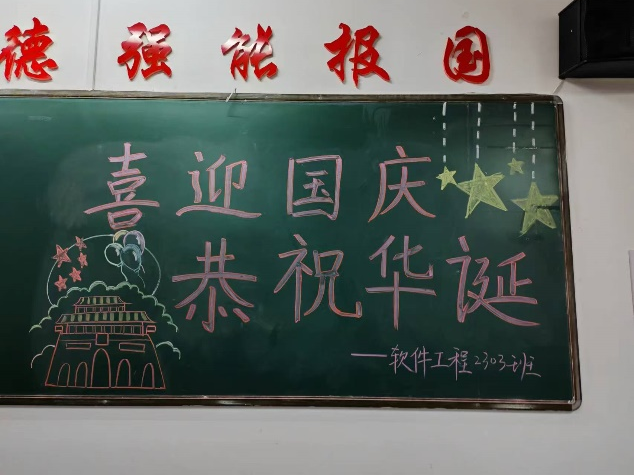 德强能报国
喜迎国庆
恭祝华诞
——软件工程2303班